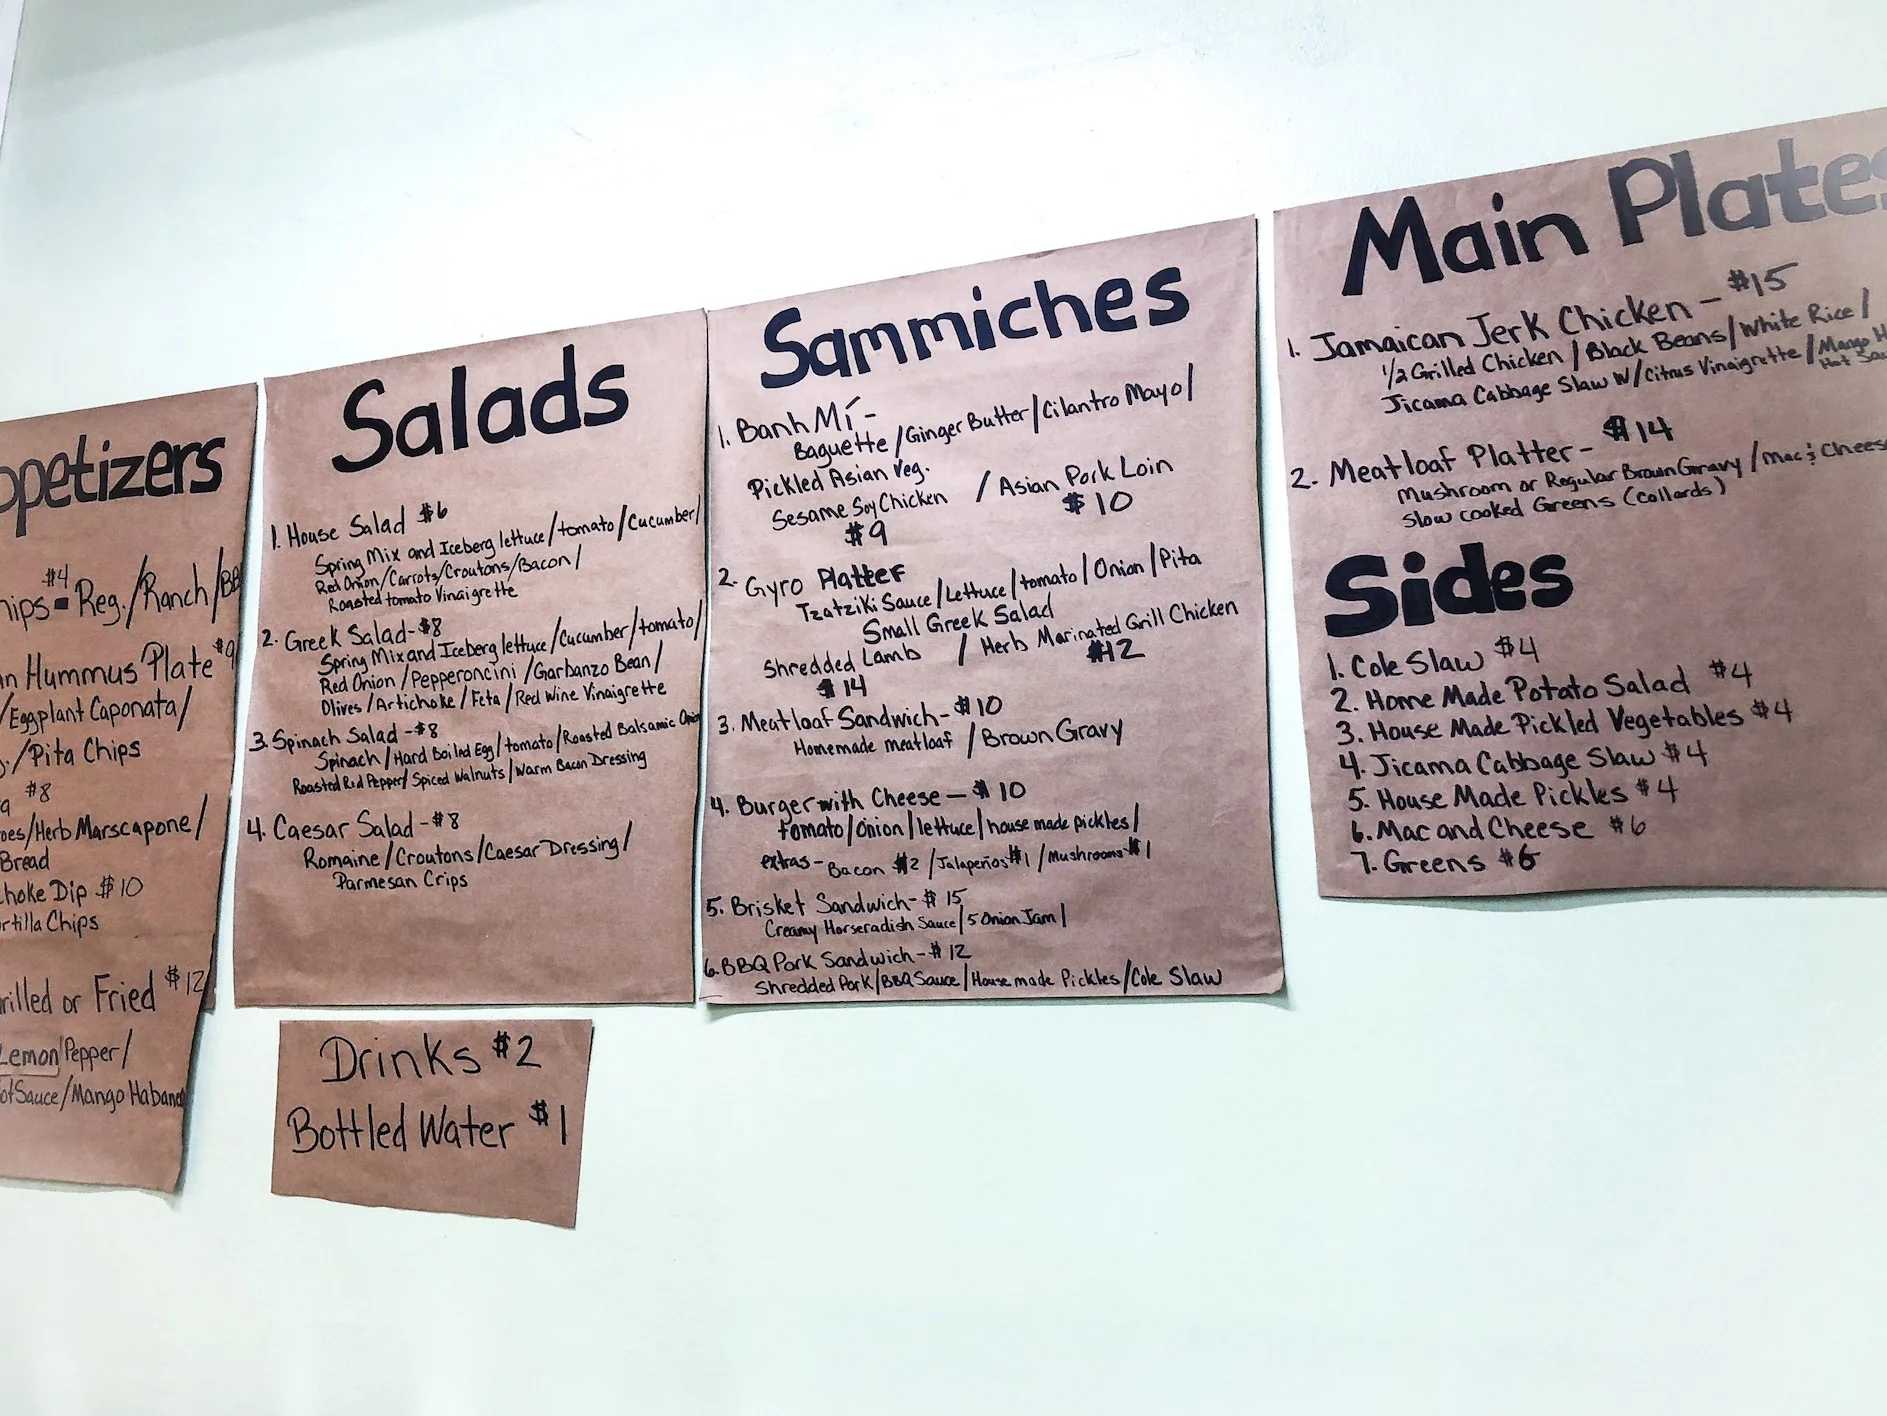 ppetizers
$4
hips - Reg./Ranch/BB
n Hummus Plate $9
/Eggplant Caponata/
/Pita Chips
$8
oes/Herb Marscapone/
Bread
choke Dip $10
rtilla Chips
rilled or Fried $12
Lemon Pepper/
otSauce/Mango Habane
Salads
1. House Salad $6
Spring Mix and Iceberg lettuce/tomato/Cucumber/
Red Onion/Carrots/Croutons/Bacon/
Roasted tomato Vinaigrette
2. Greek Salad-$8
Spring Mix and Iceberg lettuce/Cucumber/tomato/
Red Onion/Pepperoncini/Garbanzo Bean/
Olives/Artichoke/Feta/Red Wine Vinaigrette
3. Spinach Salad-$8
Spinach/Hard Boiled Egg/tomato/Roasted Balsamic Onion
Roasted Red Pepper/Spiced Walnuts/Warm Bacon Dressing
4. Caesar Salad-$8
Romaine/Croutons/Caesar Dressing/
Parmesan Crips
Drinks $2
Bottled Water $1
Sammiches
1. Banh Mí-
Baguette/Ginger Butter/Cilantro Mayo/
Pickled Asian Veg.
Sesame Soy Chicken / Asian Pork Loin
$9 $10
2. Gyro Platter
Tzatziki Sauce/Lettuce/tomato/Onion/Pita
Small Greek Salad
Shredded Lamb / Herb Marinated Grill Chicken
$14 $12
3. Meatloaf Sandwich-$10
Homemade meatloaf/Brown Gravy
4. Burger with Cheese-$10
tomato/Onion/lettuce/house made pickles/
extras-Bacon $2/Jalapeños $1/Mushrooms $1
5. Brisket Sandwich-$15
Creamy Horseradish Sauce/5 Onion Jam/
6. BBQ Pork Sandwich-$12
Shredded Pork/BBQ Sauce/House made Pickles/Cole Slaw
Main Plates
1. Jamaican Jerk Chicken-$15
1/2 Grilled Chicken/Black Beans/White Rice/
Jicama Cabbage Slaw W/Citrus Vinaigrette/Mango H
Hot Sau
2. Meatloaf Platter-$14
Mushroom or Regular Brown Gravy/Mac & Cheese
Slow cooked Greens (Collards)
Sides
1. Cole Slaw $4
2. Home Made Potato Salad $4
3. House Made Pickled Vegetables $4
4. Jicama Cabbage Slaw $4
5. House Made Pickles $4
6. Mac and Cheese $6
7. Greens $6